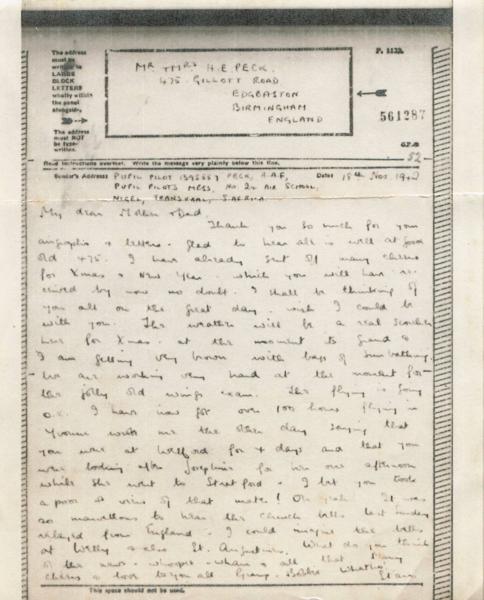 The address
must be
written in
LARGE
BLOCK
LETTERS
wholly within
the panel
alongside.
The address
must NOT
be type-
written.
MR & MRS H.E. PECK.
475. GILLOTT ROAD
EDGBASTON
BIRMINGHAM
ENGLAND
P. 1132.
561287
52
Read instructions overleaf. Write the message very plainly below this line.
Sender's Address PUPIL PILOT PECK, R.A.F, Date 18th Nov 1942
PUPIL PILOTS MESS, No. 24 AIR SCHOOL,
NIGEL, TRANSVAAL, S. AFRICA
My dear Mother & Dad,
Thank you so much for your
airgraphs & letters. Glad to hear all is well at good
old 475. I have already sent off many cheers
for Xmas & New Year. which you will have re-
ceived by now no doubt. I shall be thinking of
you all on the great day. wish I could be
with you. The weather will be a real scorcher
here for Xmas. at the moment its grand &
I am getting very brown with bags of sunbathing.
We are working very hard at the moment for
the jolly old wings exam. The flying is going
o.k. I have now got over 100 hours flying in
Yvonne wrote me the other day saying that
you were at for 4 days and that you
were looking after Josephine for her one afternoon
while she went to Stratford. I bet you took
a poor view of that mate! Oh yeah. It was
so marvellous to hear the church bells last Sunday
relayed from England. I could imagine the bells
at & also St. Augustines. What do you think
of the news. whoopee. wham & all that. Many
cheers & love to you all Gramp. Bobbie
Stan
This space should not be used.